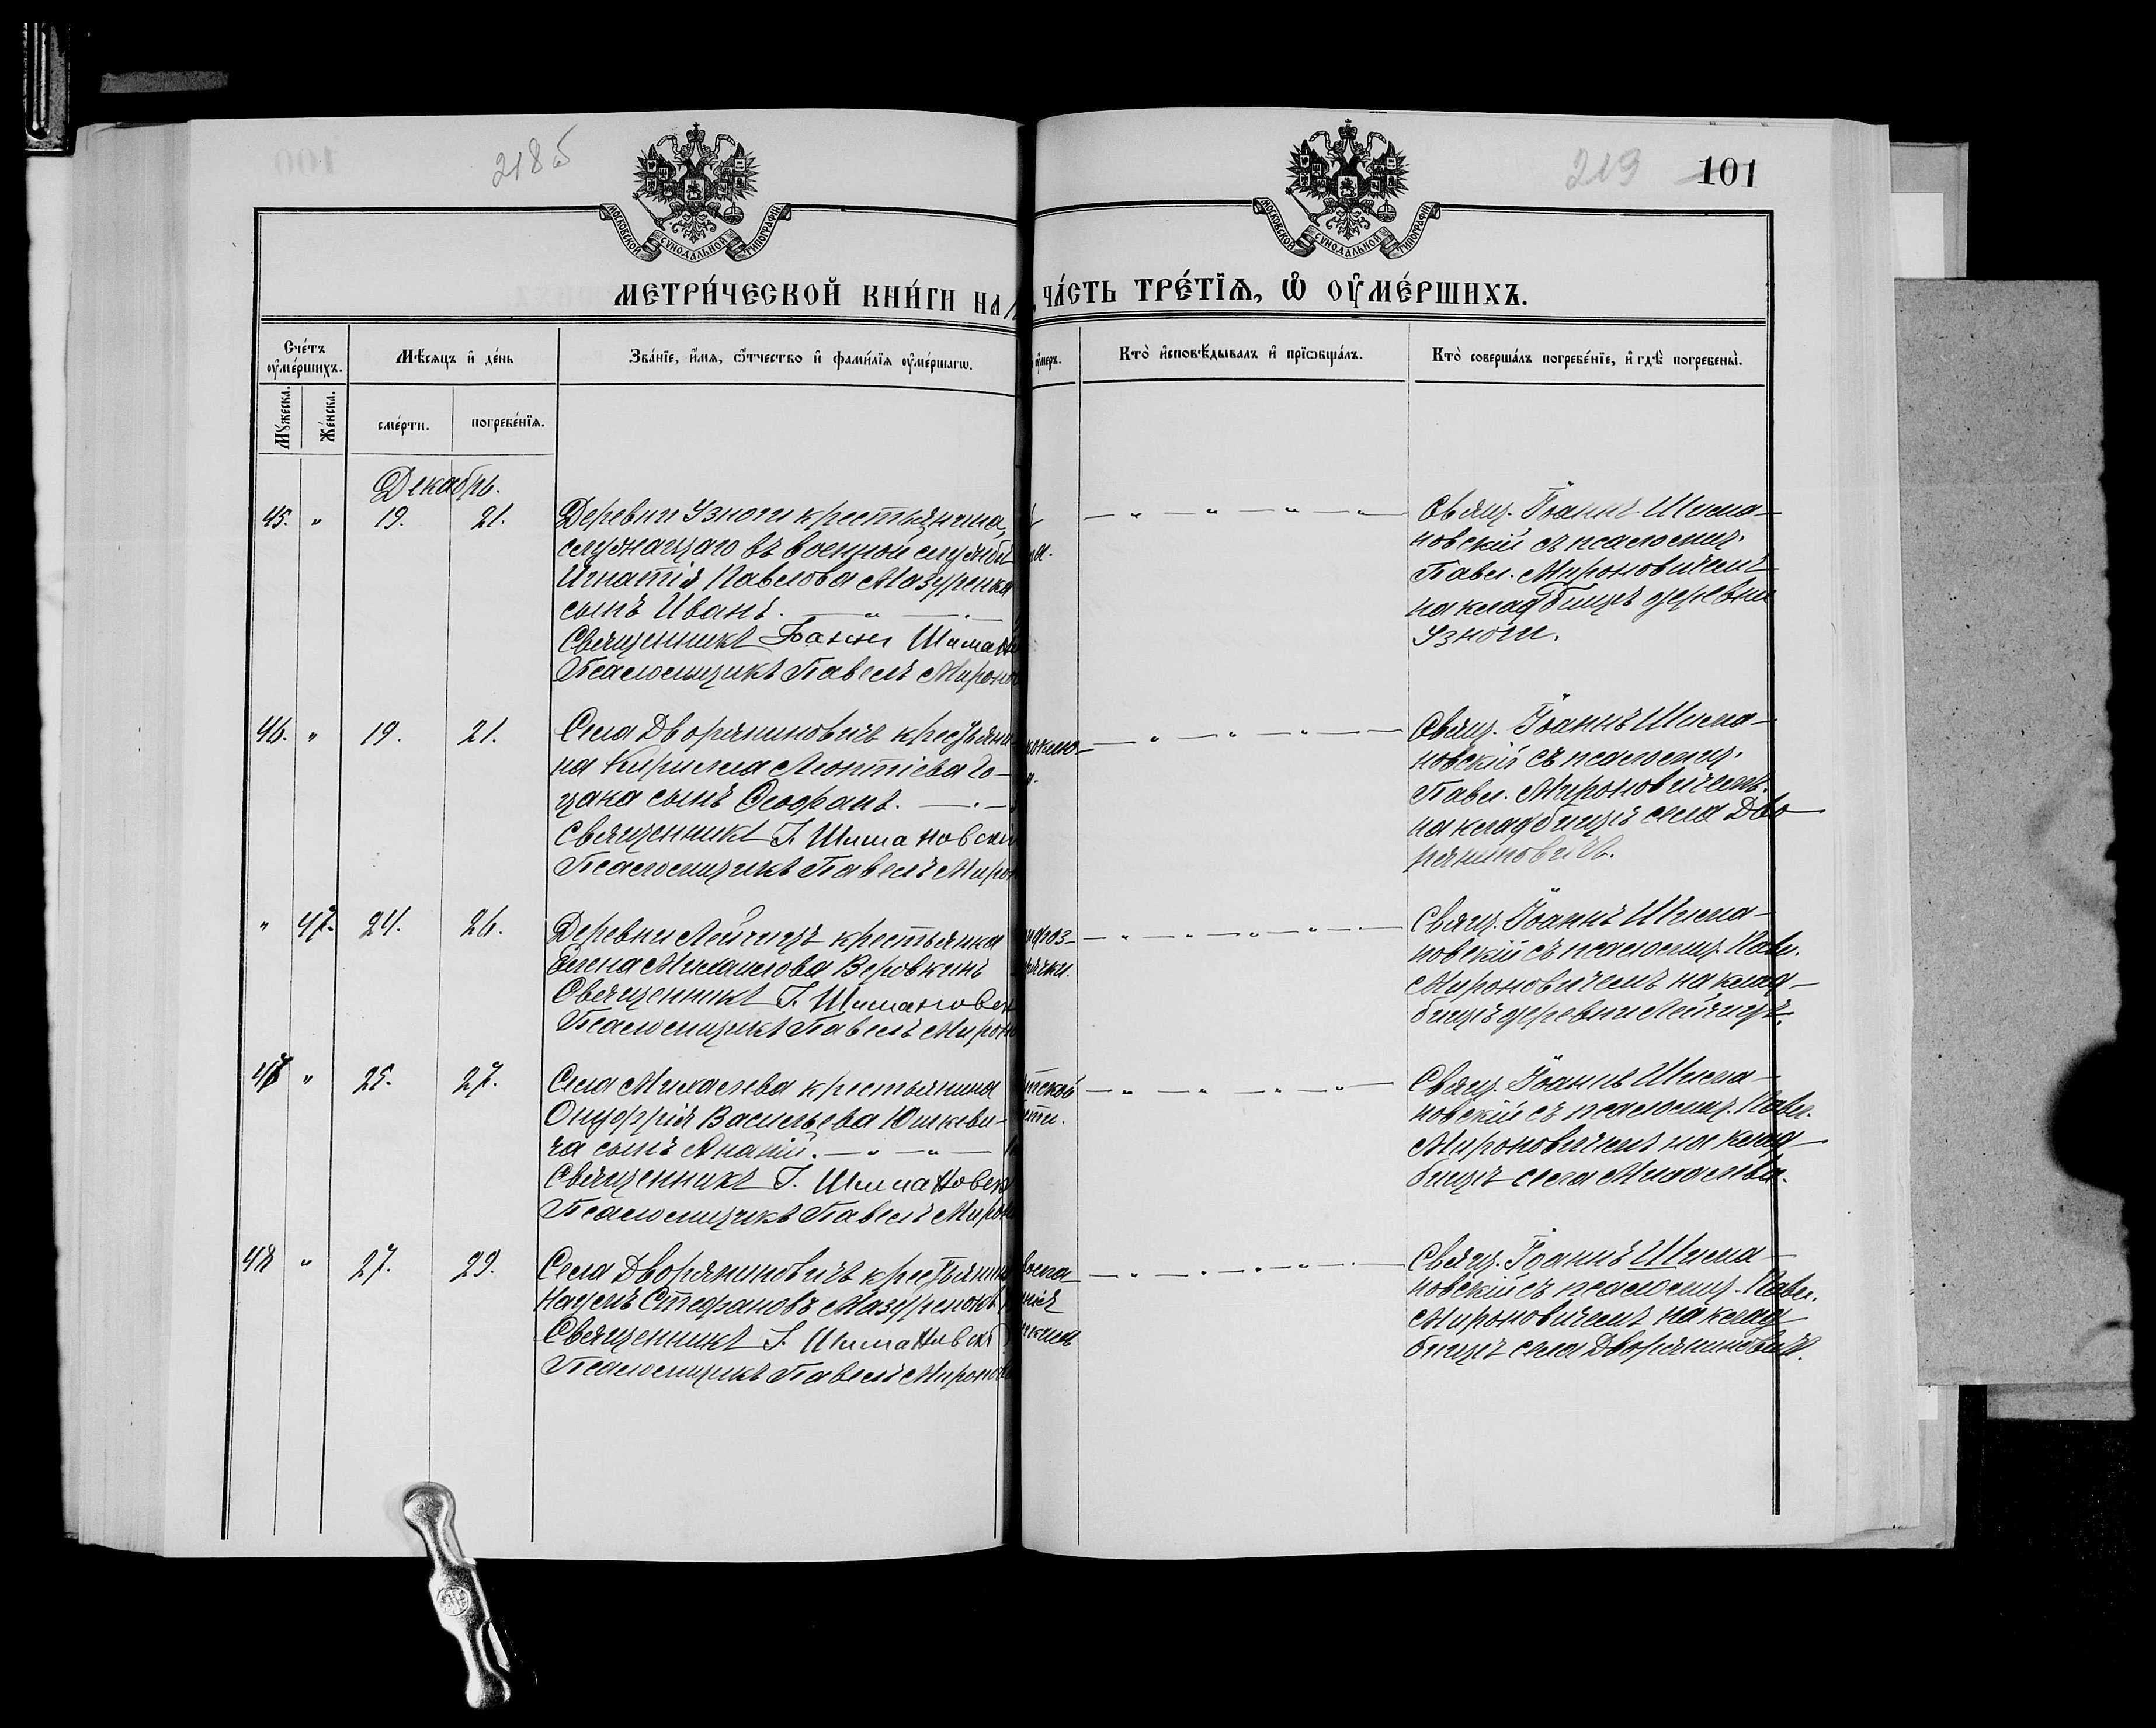 218б
219
101
МОСКОВСКОЙ СУНОДАЛЬНОЙ ТИПОГРАФІИ.
МОСКОВСКОЙ СУНОДАЛЬНОЙ ТИПОГРАФІИ.
МЕТРИ́ЧЕСКОЙ КНИ́ГИ НА
ЧА́СТЬ ТРЕ́ТЇѦ, Ѡ ОУ҆МЕ́РШИХЪ.
Сче́тъ
оу҆ме́ршихъ.
Мѣ́сяцъ и҆ де́нь
Зва́нїе, и҆́мя, ѻ҆́тчество и҆ фами́лїя оу҆ме́ршагѡ.
оу҆́меръ.
Кто̀ и҆сповѣ́дывалъ и҆ прїѡбща́лъ.
Кто̀ соверша́лъ погребе́нїе, и҆ гдѣ̀ погребены̀.
Му́жеска.
Же́нска.
сме́рти.
погребе́нїя.
Декабрь.
45. " 19. 21.
Деревни Узноги крестьянина,
служащаго въ военной службѣ
Игнатія Павлова Мазуренка
сынъ Иванъ.
Священникъ Іоаннъ Шима
Псаломщикъ Павелъ Мироно
Свящ. Іоаннъ Шима-
новскій съ псаломщ.
Павл. Мироновичемъ
на кладбищѣ деревни
Узноги.
46. " 19. 21.
Села Дворяниновичъ крестьяни-
на Кирилла Леонтіева Го-
цака сынъ Ѳеофанъ.
Священникъ І. Шимановскій
Псаломщикъ Павелъ Миро
Свящ. Іоаннъ Шима-
новскій съ псаломщ.
Павл. Мироновичемъ
на кладбищѣ села Дво-
ряниновичъ.
" 47. 24. 26.
Деревни Лейчицъ крестьянка
Елена Михаилова Веровкинъ
Священникъ І. Шимановск
Псаломщикъ Павелъ Мироно
Свящ. Іоаннъ Шима-
новскій съ псаломщ. Павл.
Мироновичемъ на клад-
бищѣ деревни Лейчицъ.
47 " 25. 27.
Села Михалева крестьянина
Онуфрія Васильева Юшкеви-
ча сынъ Ананій.
Священникъ І. Шимановск
Псаломщикъ Павелъ Мироно
Свящ. Іоаннъ Шима-
новскій съ псаломщ. Павл.
Мироновичемъ на клад-
бищѣ села Михалева.
48 " 27. 29.
Села Дворяниновичъ крестьянинъ
Наумъ Стефановъ Мазуренокъ
Священникъ І. Шимановск
Псаломщикъ Павелъ Миронов
Свящ. Іоаннъ Шима-
новскій съ псаломщ. Павл.
Мироновичемъ на клад-
бищѣ села Дворяниновичъ.